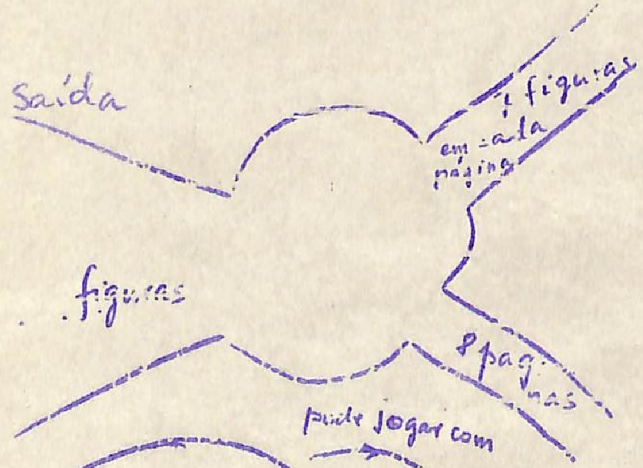 saída
figuras
em cada
página
figuras
8 pági
nas
pode jogar com